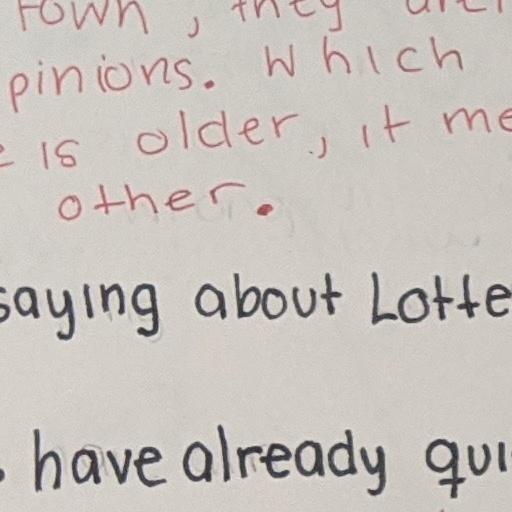 Town, they
pinions. Which
is older, it me
other.
saying about Lotte
have already qui